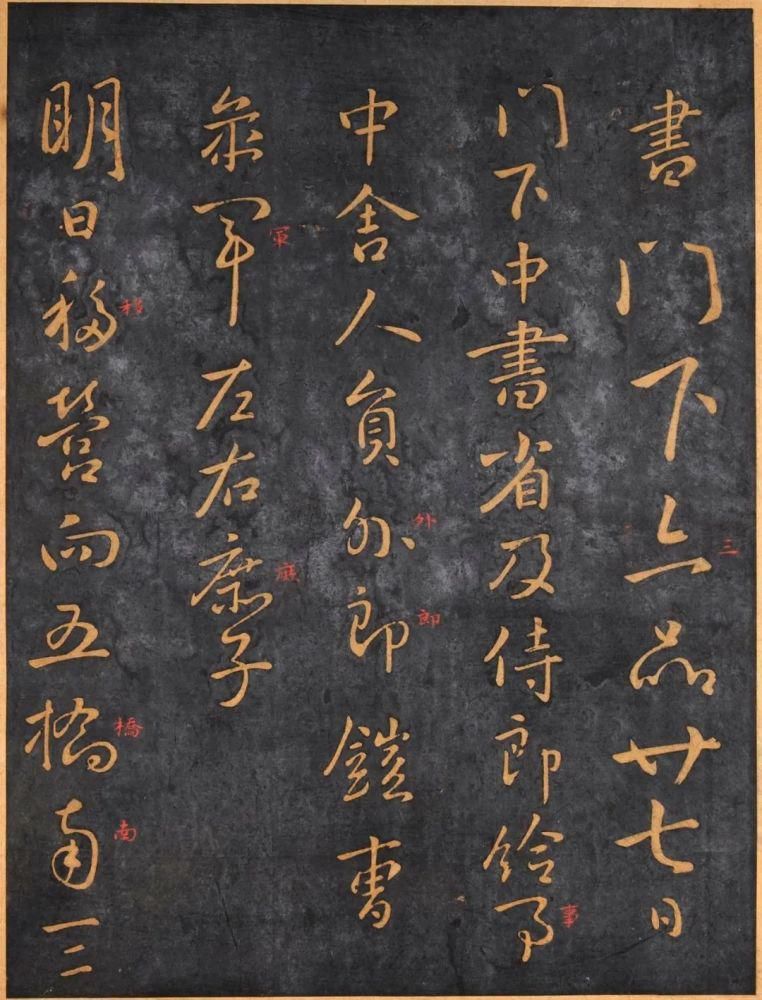 書門下三品廿七日
三
門下中書省及侍郎給事
事
中舍人員外郎鎧曹
外
郎
參軍左右庶子
軍
庶
明日移營向五橋南三
移
橋
南